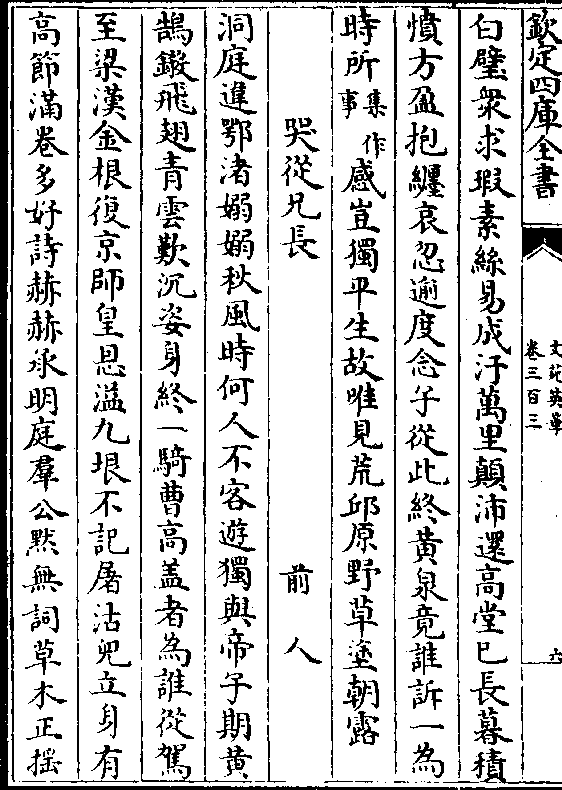 欽定四庫全書
文苑英華
卷三百三
六
白璧衆求瑕素絲易成汙萬里顛沛還高堂已長暮積
憤方盈抱纒哀忽逾度念子從此終黄泉竟誰訴一為
時所集作事感豈獨平生故唯見荒邱原野草塗朝露
哭從兄長 前人
洞庭進鄂渚嫋嫋秋風時何人不客遊獨與帝子期黄
鵠鎩飛翅青雲歎沉姿身終一騎曹高盖者為誰從駕
至梁漢金根復京師皇恩溢九垠不記屠沽兒立身有
高節滿卷多好詩赫赫承明庭羣公黙無詞草木正揺